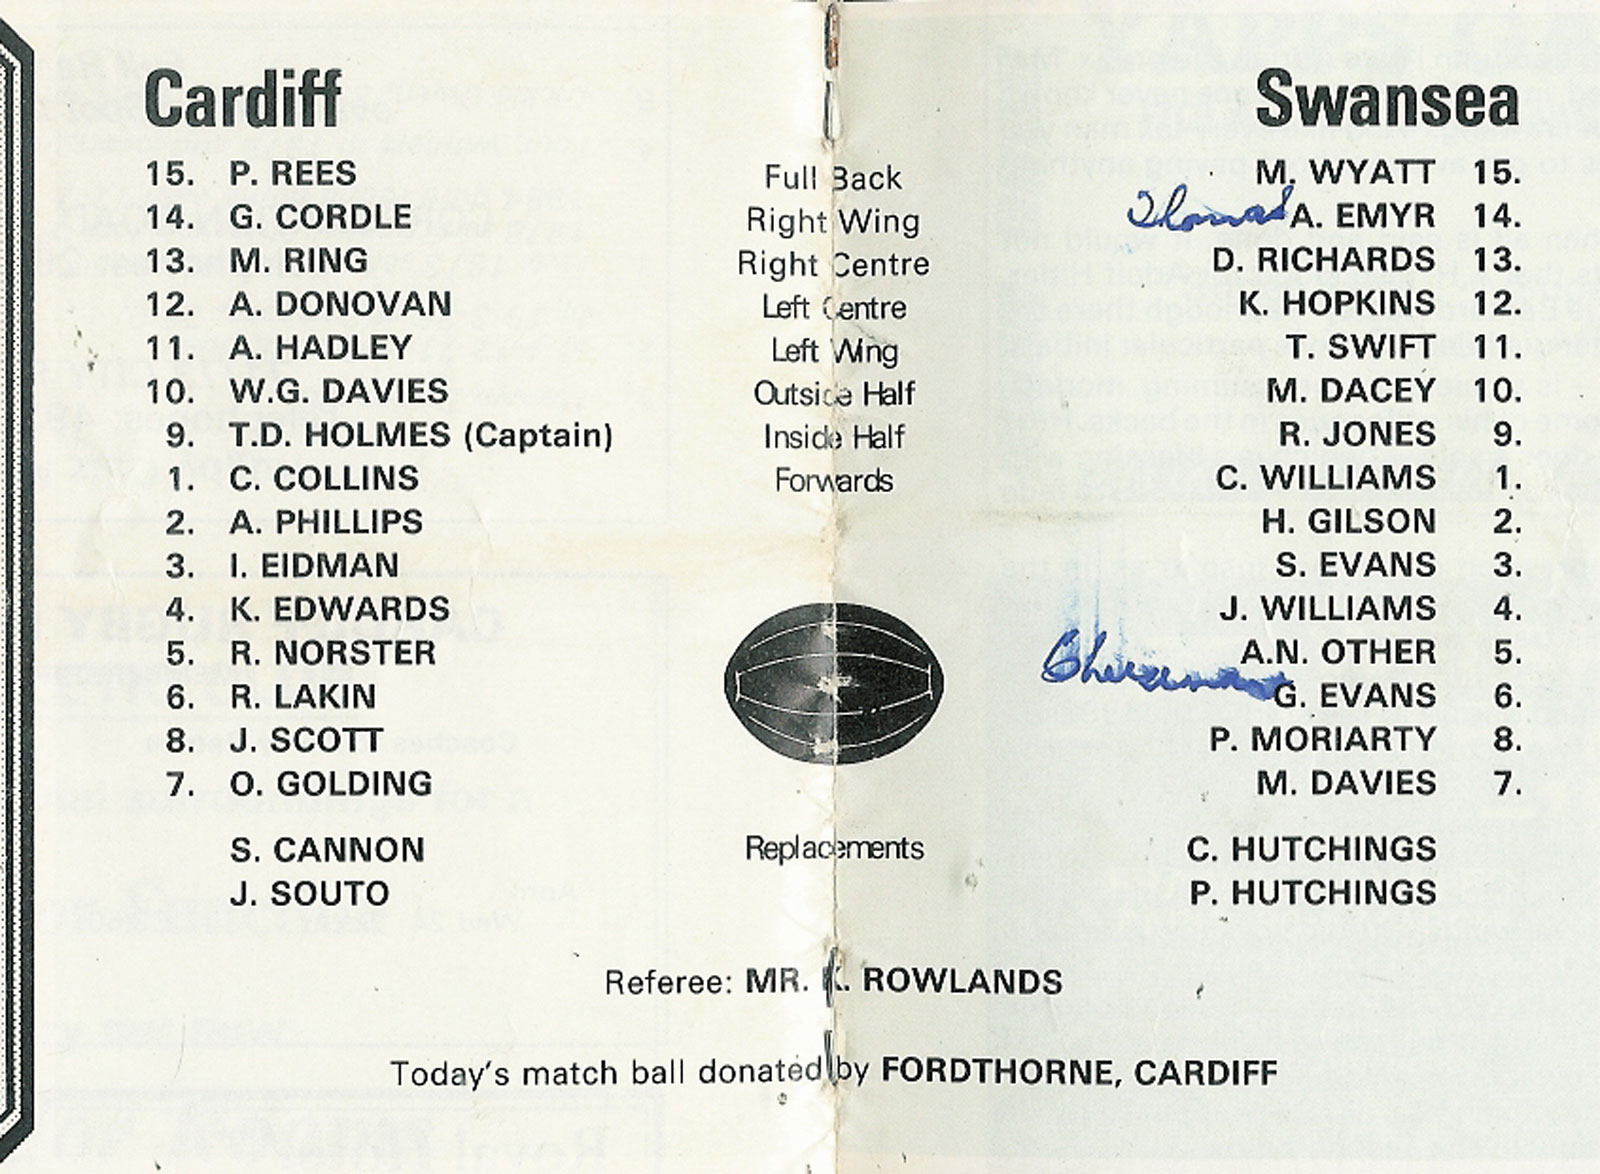 Cardiff Swansea
15. P. REES Full Back M. WYATT 15.
14. G. CORDLE Right Wing Thomas A. EMYR 14.
13. M. RING Right Centre D. RICHARDS 13.
12. A. DONOVAN Left Centre K. HOPKINS 12.
11. A. HADLEY Left Wing T. SWIFT 11.
10. W.G. DAVIES Outside Half M. DACEY 10.
9. T.D. HOLMES (Captain) Inside Half R. JONES 9.
1. C. COLLINS Forwards C. WILLIAMS 1.
2. A. PHILLIPS H. GILSON 2.
3. I. EIDMAN S. EVANS 3.
4. K. EDWARDS J. WILLIAMS 4.
5. R. NORSTER A.N. OTHER 5.
6. R. LAKIN G. EVANS 6.
8. J. SCOTT P. MORIARTY 8.
7. O. GOLDING M. DAVIES 7.
S. CANNON Replacements C. HUTCHINGS
J. SOUTO P. HUTCHINGS
Referee: MR. K. ROWLANDS
Today's match ball donated by FORDTHORNE, CARDIFF